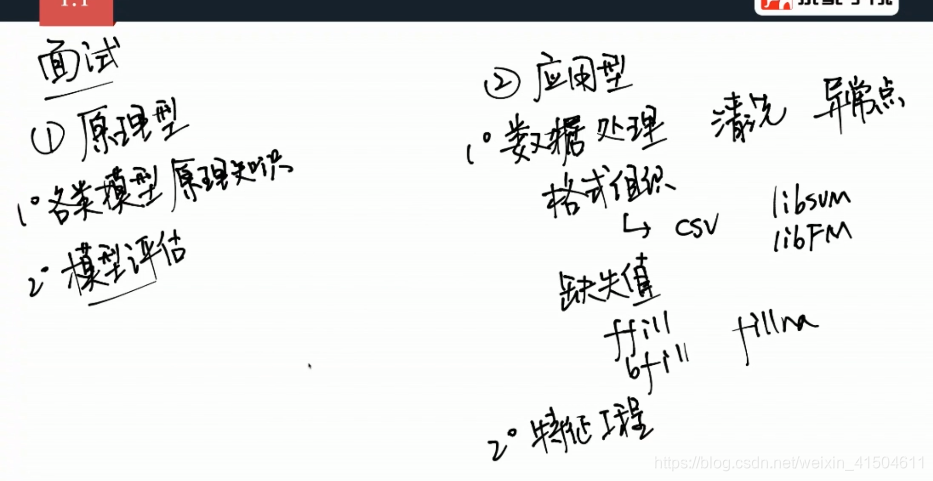 1.1
面试
① 原理型
1° 各类模型原理知识
2° 模型评估
② 应用型
1° 数据处理 清洗 异常点
格式组织
↳ csv libsvm
libFM
缺失值
ffill fillna
bfill
2° 特征工程
https://blog.csdn.net/weixin_41504611